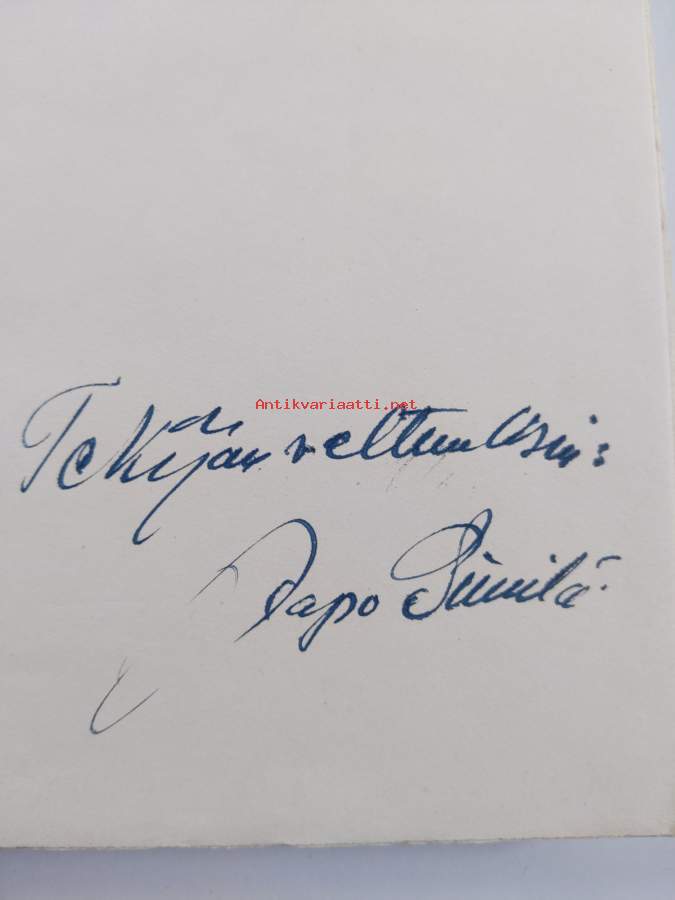 Antikvariaatti.net
Tekijän valtuuksin:
Aapo Similä